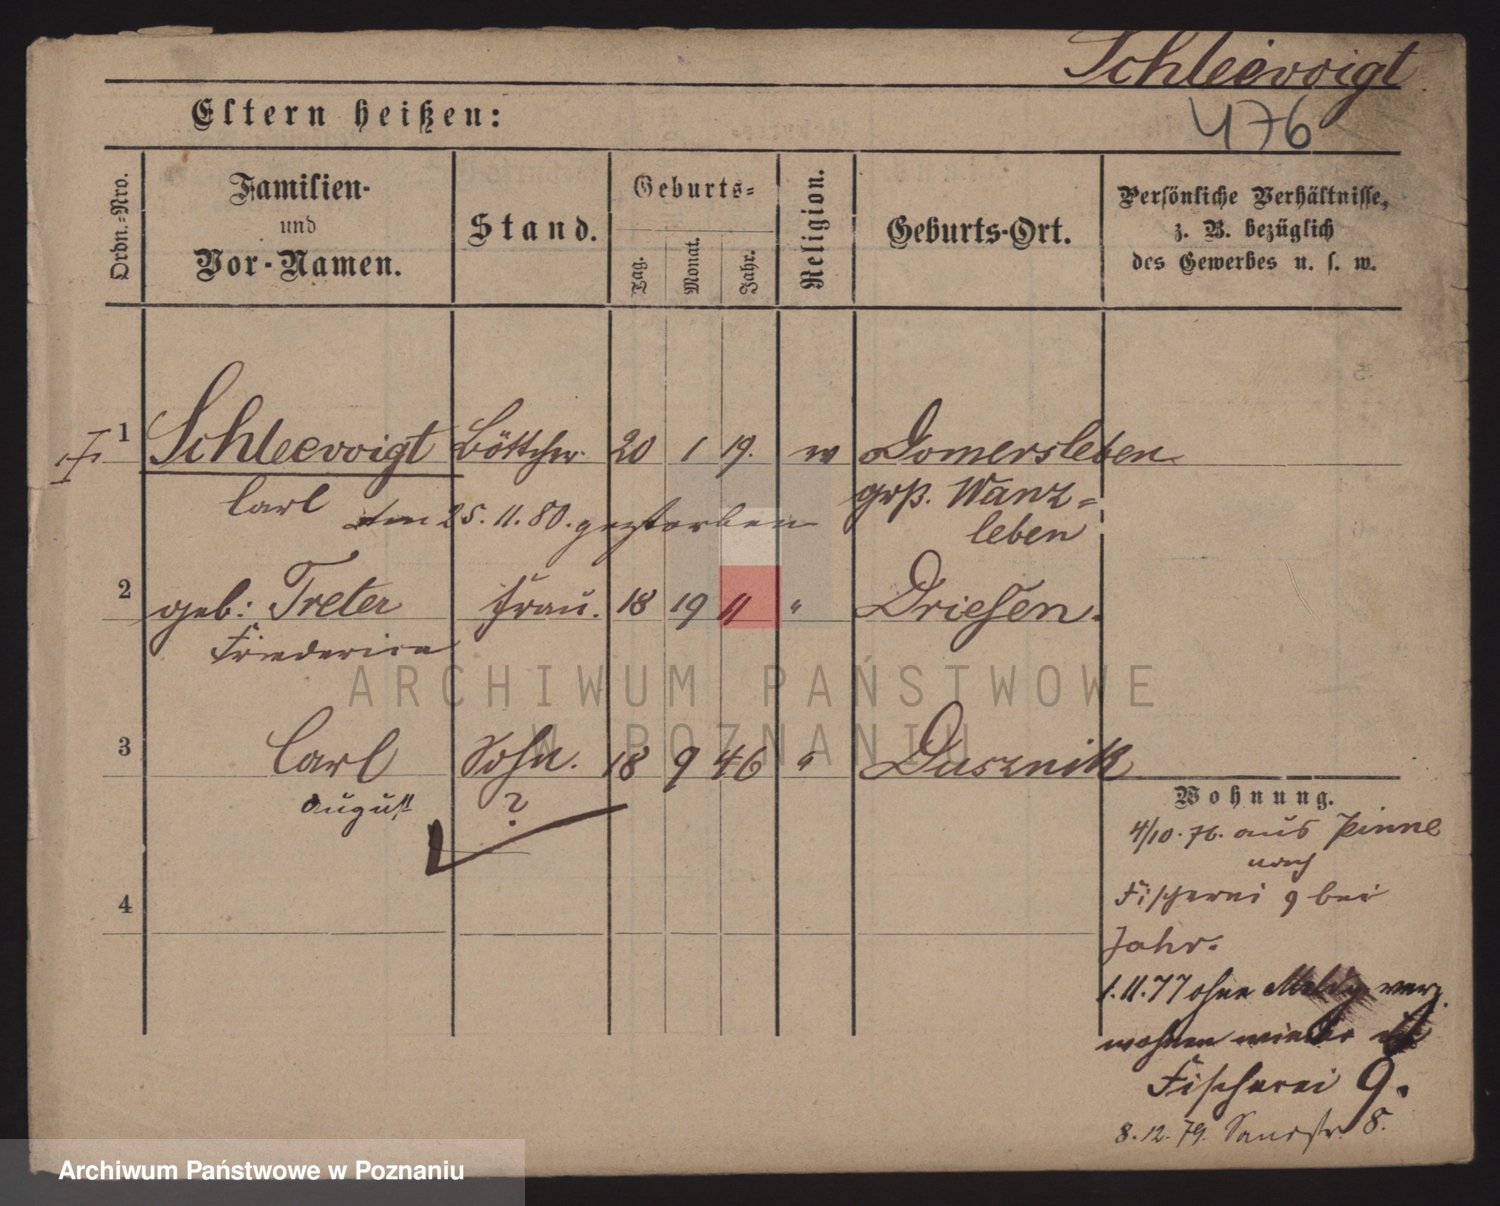 Schleevoigt
476
Eltern heißen:
Ordn.-Nro.
Familien-
und
Vor-Namen.
Stand.
Geburts-
Tag.
Monat.
Jahr.
Religion.
Geburts-Ort.
Persönliche Verhältnisse,
z. B. bezüglich
des Gewerbes u. s. w.
1 Schleevoigt Böttcher 20 1 19. w Domersleben
Carl am 25.11.80. gestorben grß. Wanz-
leben
2 geb: Treter Frau. 18 19 11 " Driesen.
Friederica
3 Carl Sohn. 18 9 46 " Dusznik
August ?
4
Wohnung.
4/10. 76. aus Pinne
nach
Fischerei 9 bei
Jahr.
1.11.77 ohne Meldg. verz.
wohnen wieder
Fischerei 9.
8.12.79. Sandstr. 8.
ARCHIWUM PAŃSTWOWE
W POZNANIU
Archiwum Państwowe w Poznaniu